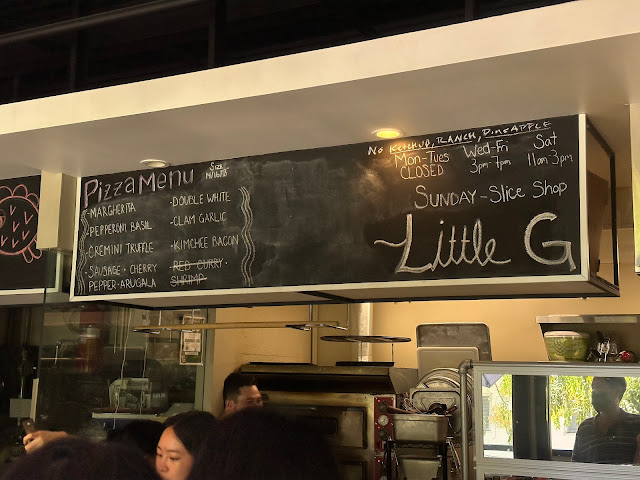 Pizza Menu
-MARGHERITA
-PEPPERONI BASIL
-CREMINI TRUFFLE
-SAUSAGE + CHERRY
PEPPER-ARUGALA
-DOUBLE WHITE
-CLAM GARLIC
-KIMCHEE BACON
-RED CURRY
SHRIMP
No KETCHUP, RANCH, PINEAPPLE
Mon-Tues Wed-Fri Sat
CLOSED 3pm-7pm 11am-3pm
SUNDAY-Slice Shop
Little G